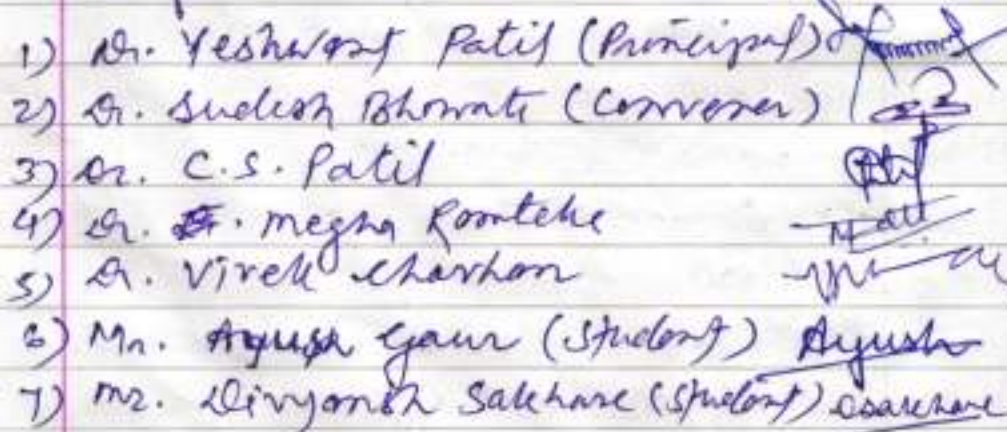 1) Dr. Yeshwant Patil (Principal)
2) Dr. Sudesh Bhowate (Convener)
3) Dr. C.S. Patil
4) Dr. Megha Ramteke
5) Dr. Vivek Chavhan
6) Mr. Ayush Gaur (Student) Ayush
7) Mr. Divyansh Sakhare (Student) Dsakhare